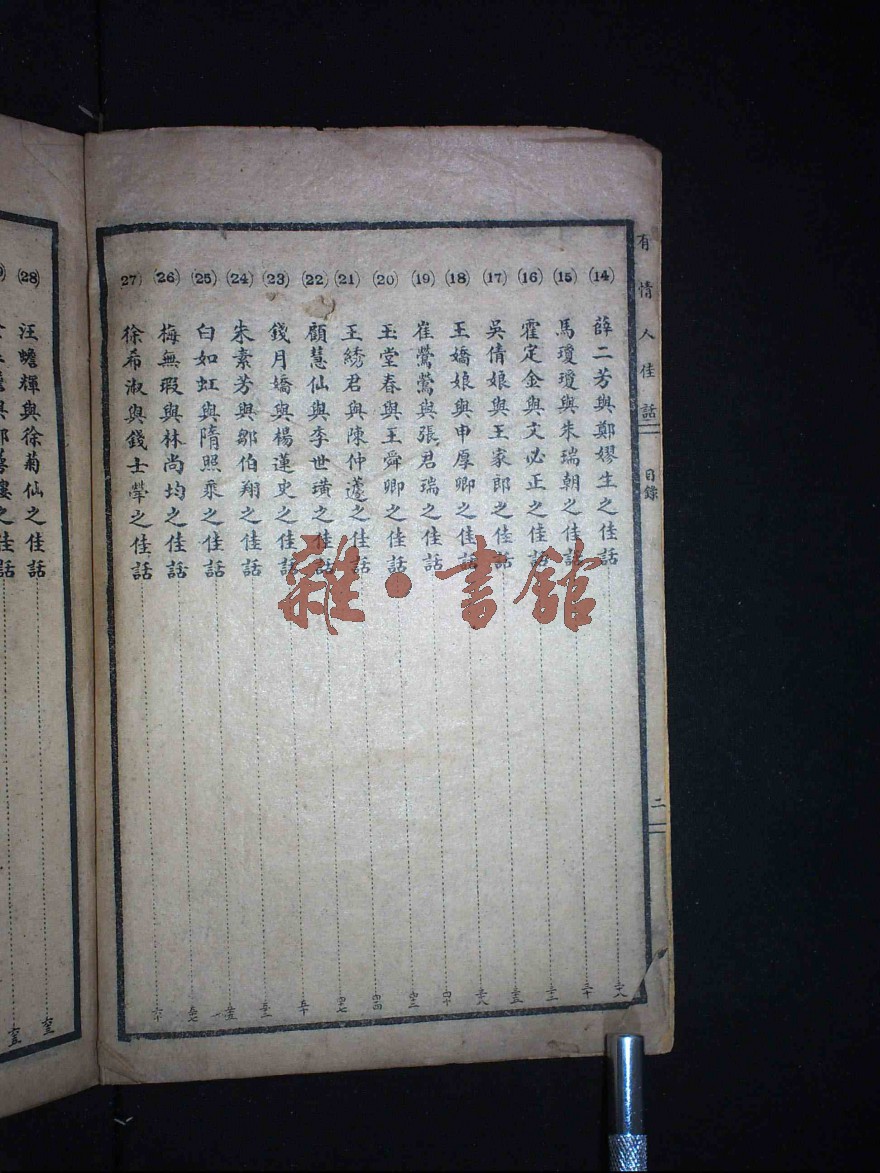 有情人佳話 目錄 二
(14) 薛二芳與鄭嫪生之佳話
(15) 馬瓊瓊與朱瑞朝之佳話
(16) 霍定金與文必正之佳話
(17) 吳倩娘與王家郎之佳話
(18) 王嬌娘與申厚卿之佳話 四十
(19) 崔鶯鶯與張君瑞之佳話 四二
(20) 玉堂春與王舜卿之佳話 四四
(21) 王綉君與陳仲蘧之佳話 四七
(22) 顧慧仙與李世璜之佳話 五十
(23) 錢月嬌與楊蓮史之佳話
(24) 朱素芳與鄒伯翔之佳話
(25) 白如虹與隋照乘之佳話
(26) 梅無瑕與林尚均之佳話 五七
27) 徐希淑與錢士犖之佳話 六十
(28) 汪蟾輝與徐菊仙之佳話
之佳話
雜·書館